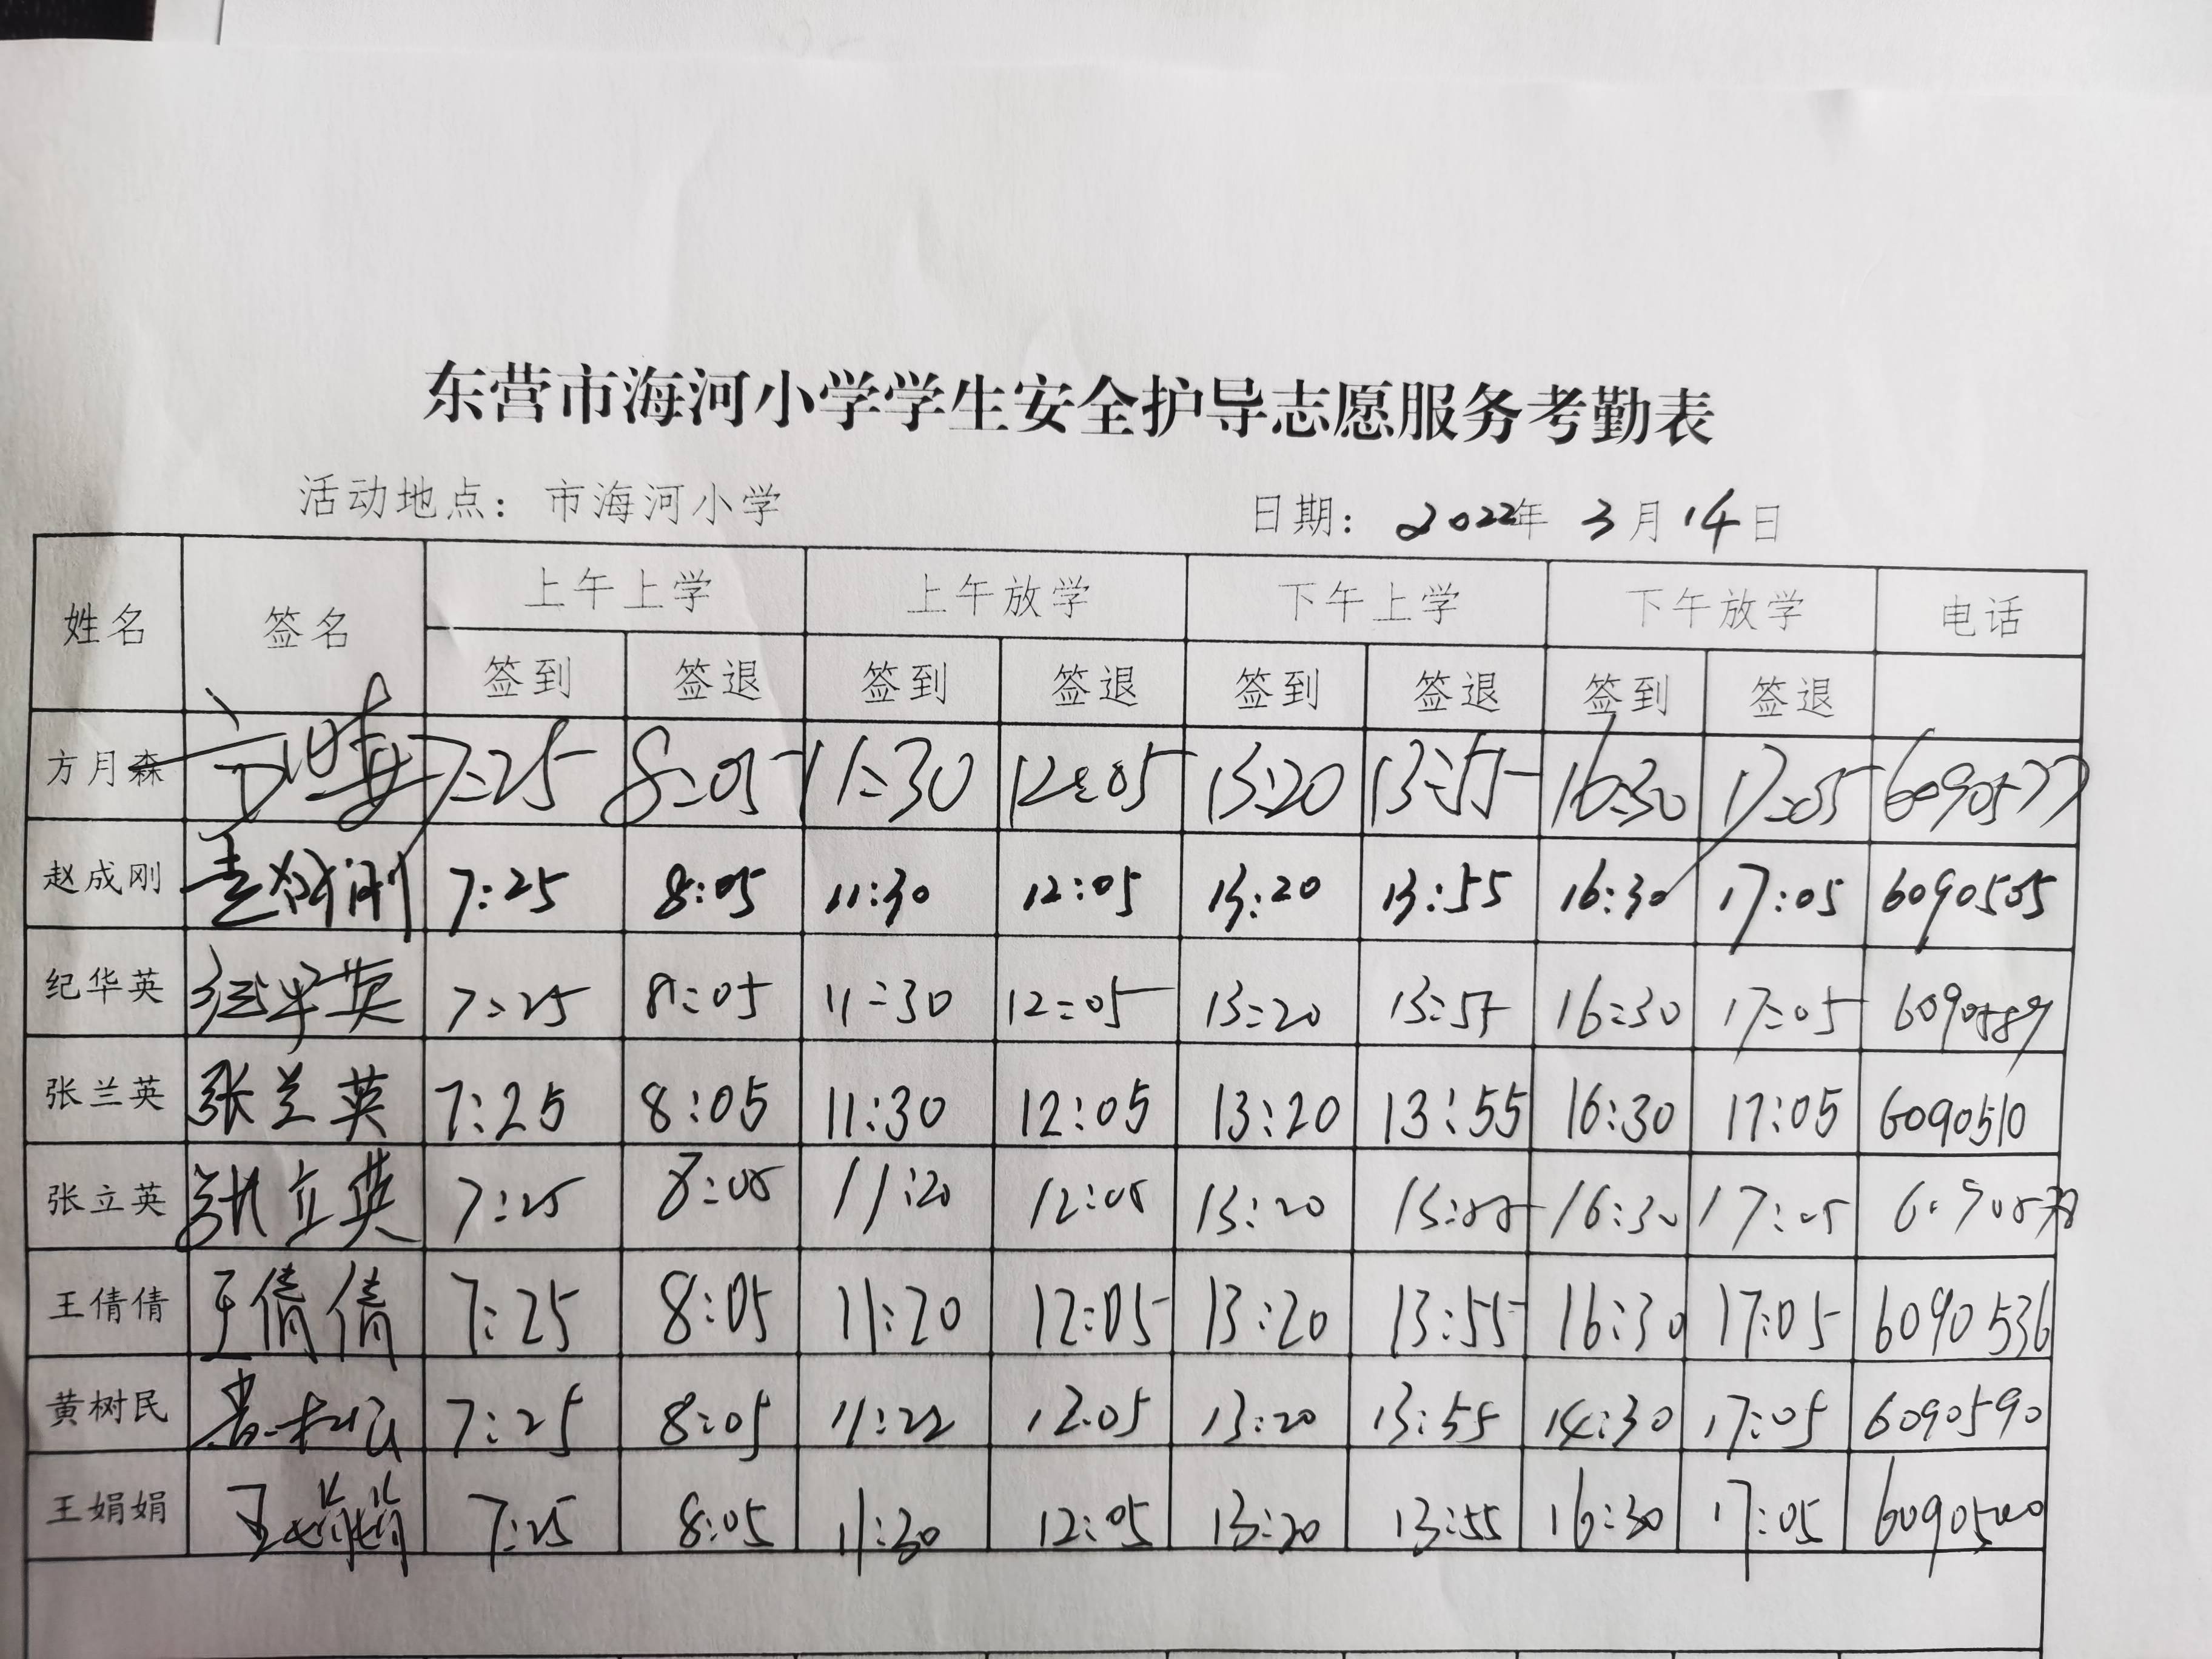 东营市海河小学学生安全护导志愿服务考勤表
活动地点：市海河小学 日期：2022年3月14日
姓名 签名 上午上学 上午放学 下午上学 下午放学 电话
签到 签退 签到 签退 签到 签退 签到 签退
方月森 7:25 8:05 11:30 12:05 13:20 13:55 16:30 17:05 6090577
赵成刚 赵成刚 7:25 8:05 11:30 12:05 13:20 13:55 16:30 17:05 6090505
纪华英 纪华英 7:25 8:05 11:30 12:05 13:20 13:55 16:30 17:05 6090589
张兰英 张兰英 7:25 8:05 11:30 12:05 13:20 13:55 16:30 17:05 6090510
张立英 张立英 7:25 8:05 11:20 12:05 13:20 13:55 16:30 17:05
王倩倩 王倩倩 7:25 8:05 11:20 12:05 13:20 13:55 16:30 17:05 6090536
黄树民 黄树民 7:25 8:05 11:22 12:05 13:20 13:55 14:30 17:05 6090590
王娟娟 王娟娟 7:25 8:05 11:30 12:05 13:20 13:55 16:30 17:05